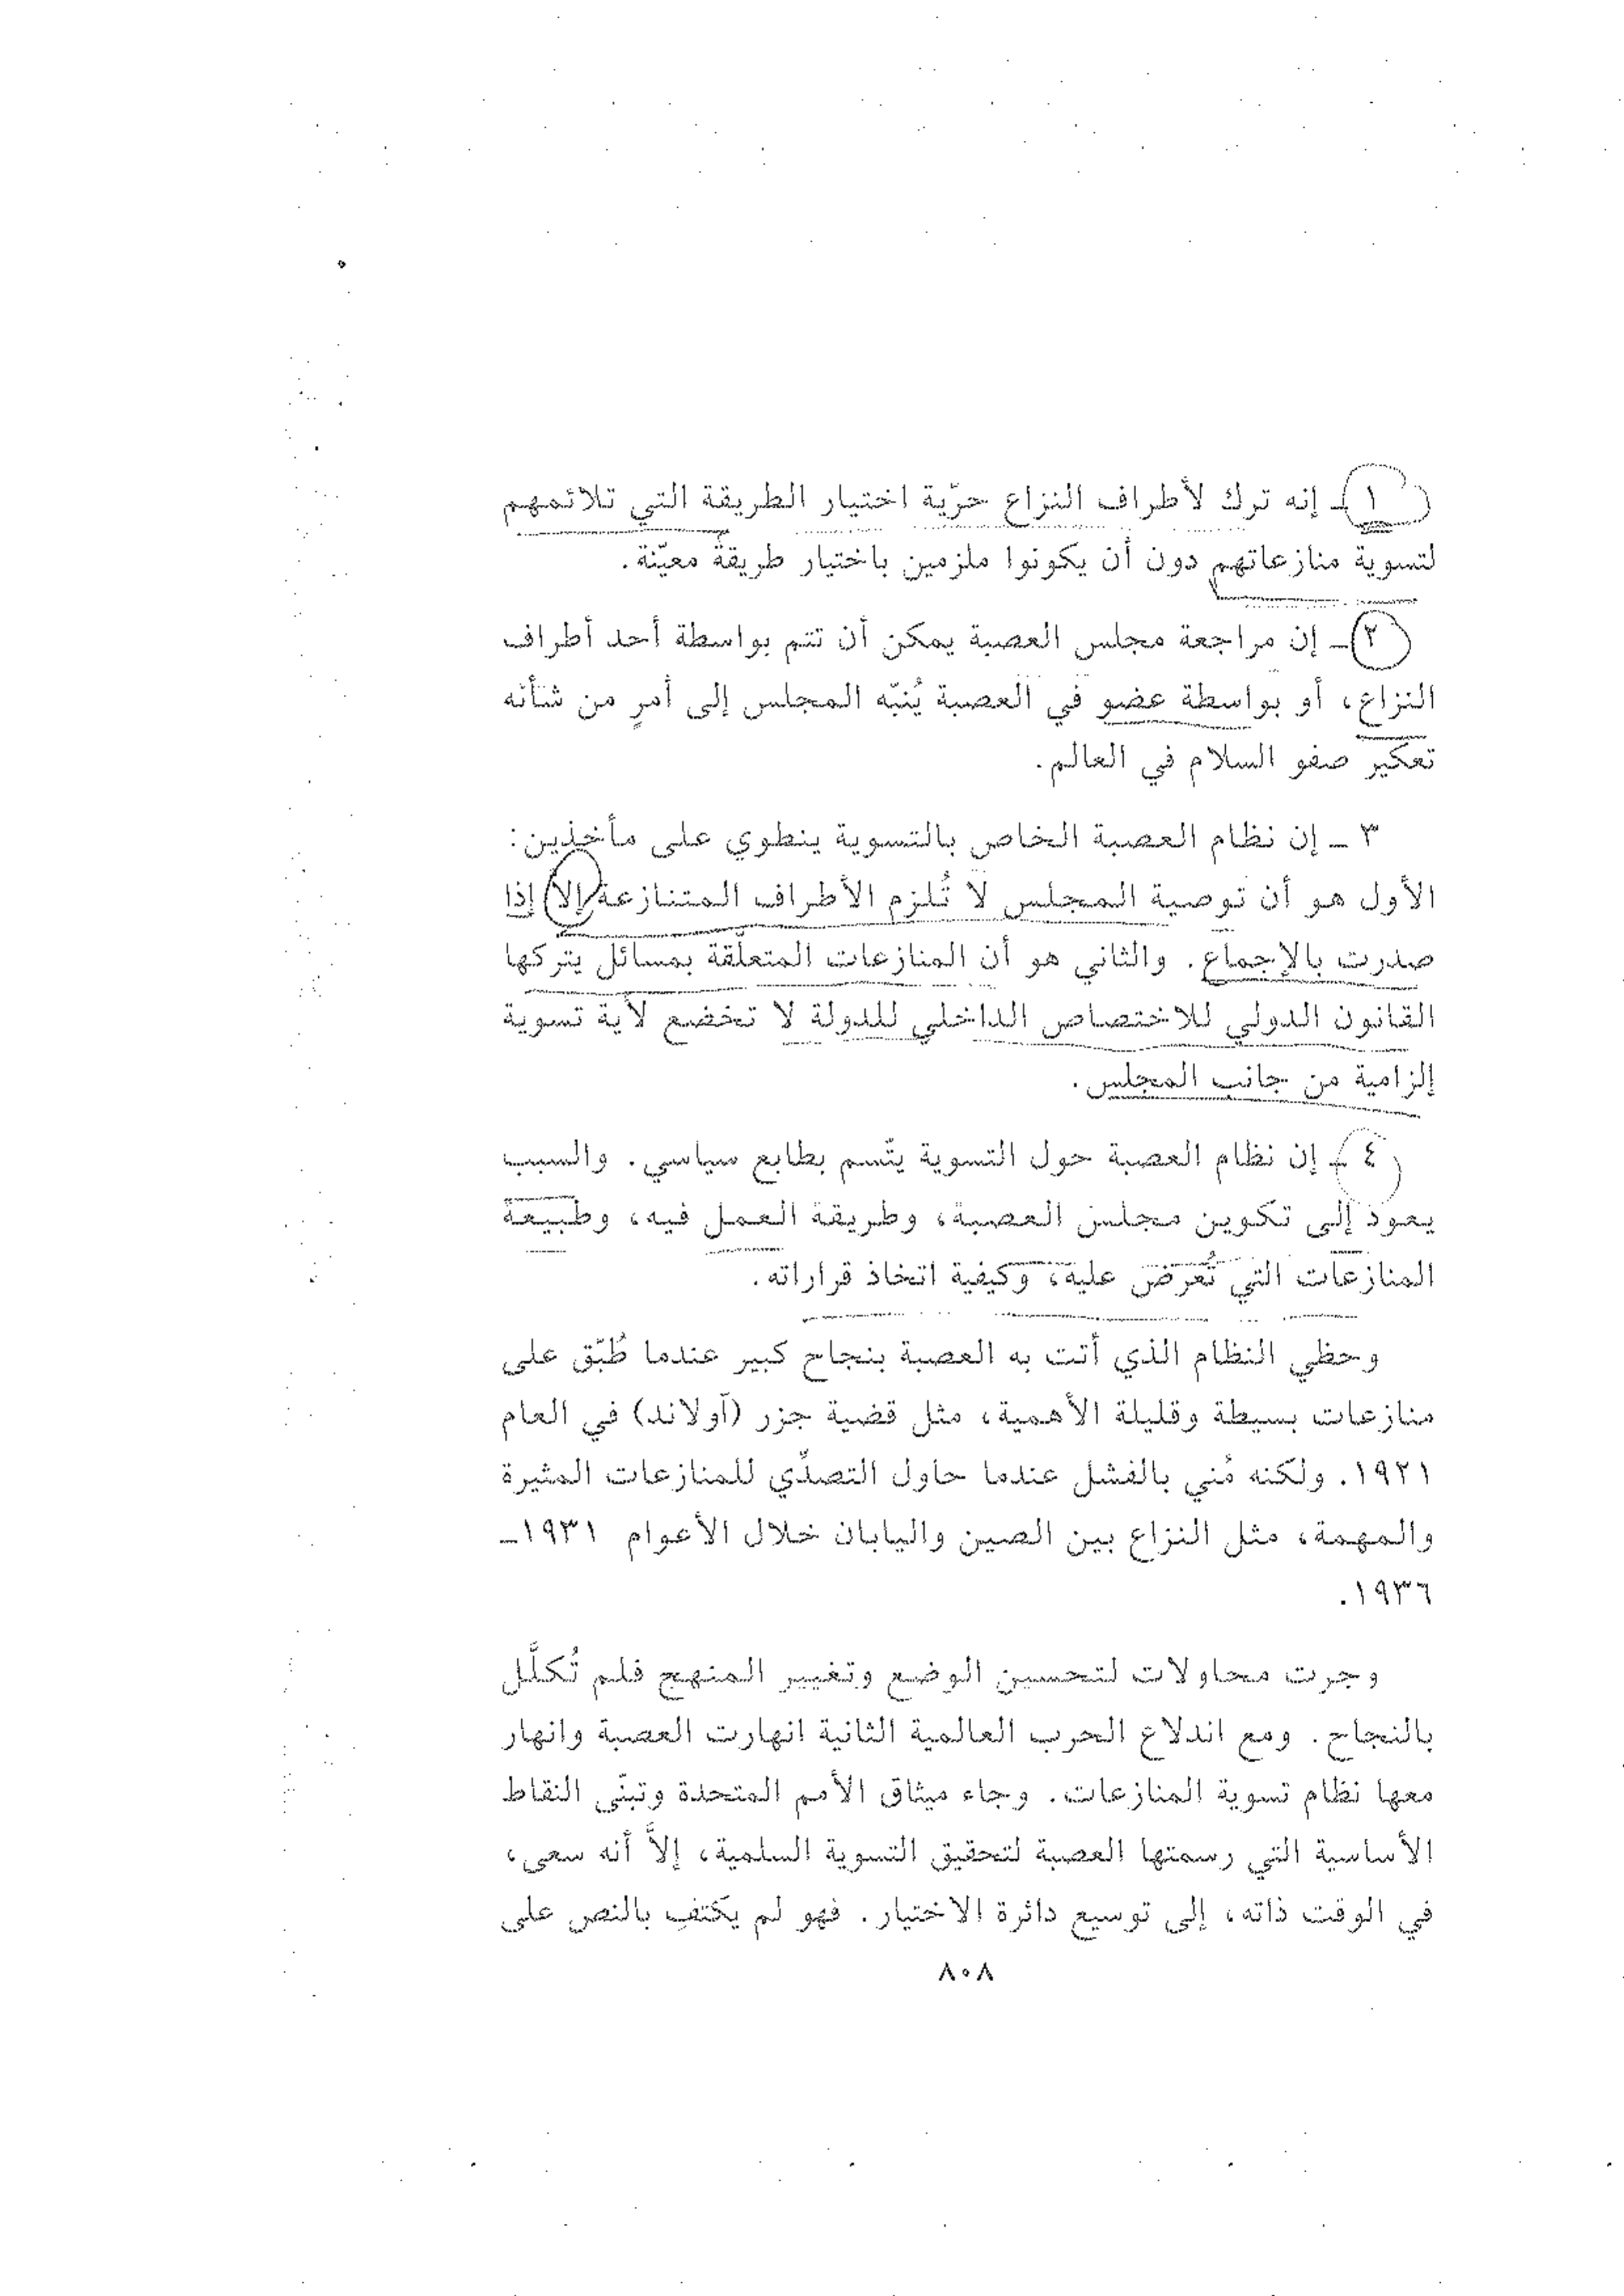 ١ ـ إنه ترك لأطراف النزاع حرّية اختيار الطريقة التي تلائمهم
لتسوية منازعاتهم دون أن يكونوا ملزمين باختيار طريقة معيّنة.
٢ ـ إن مراجعة مجلس العصبة يمكن أن تتم بواسطة أحد أطراف
النزاع، أو بواسطة عضو في العصبة يُنبّه المجلس إلى أمرٍ من شأنه
تعكير صفو السلام في العالم.
٣ ـ إن نظام العصبة الخاص بالتسوية ينطوي على مأخذين:
الأول هو أن توصية المجلس لا تُلزم الأطراف المتنازعة إلا إذا
صدرت بالإجماع. والثاني هو أن المنازعات المتعلّقة بمسائل يتركها
القانون الدولي للاختصاص الداخلي للدولة لا تخضع لأية تسوية
إلزامية من جانب المجلس.
٤ ـ إن نظام العصبة حول التسوية يتّسم بطابع سياسي. والسبب
يعود إلى تكوين مجلس العصبة، وطريقة العمل فيه، وطبيعة
المنازعات التي تُعرض عليه، وكيفية اتخاذ قراراته.
وحظي النظام الذي أتت به العصبة بنجاح كبير عندما طُبّق على
منازعات بسيطة وقليلة الأهمية، مثل قضية جزر (آولاند) في العام
١٩٢١. ولكنه مُني بالفشل عندما حاول التصدّي للمنازعات المثيرة
والمهمة، مثل النزاع بين الصين واليابان خلال الأعوام ١٩٣١ـ
١٩٣٦.
وجرت محاولات لتحسين الوضع وتغيير المنهج فلم تُكلَّل
بالنجاح. ومع اندلاع الحرب العالمية الثانية انهارت العصبة وانهار
معها نظام تسوية المنازعات. وجاء ميثاق الأمم المتحدة وتبنّى النقاط
الأساسية التي رسمتها العصبة لتحقيق التسوية السلمية، إلاَّ أنه سعى،
في الوقت ذاته، إلى توسيع دائرة الاختيار. فهو لم يكتفِ بالنص على
٨٠٨